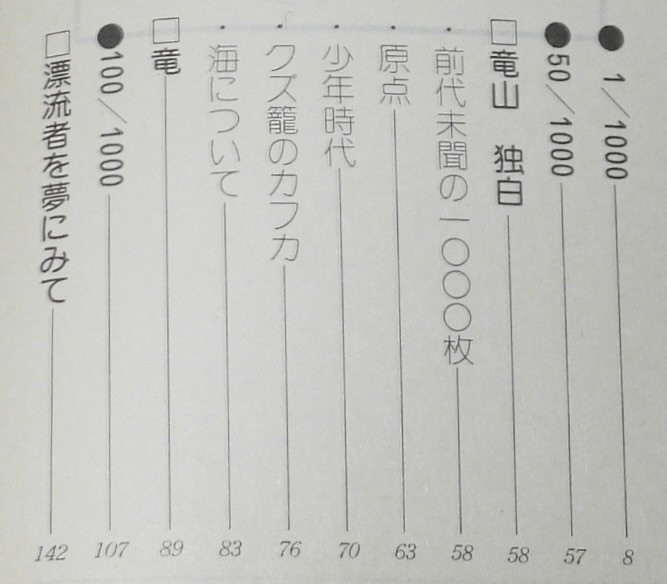 ●1/1000 8
●50/1000 57
□竜山 独白 58
・前代未聞の一〇〇〇枚 58
・原点 63
・少年時代 70
・クズ籠のカフカ 76
・海について 83
□竜 89
●100/1000 107
□漂流者を夢にみて 142